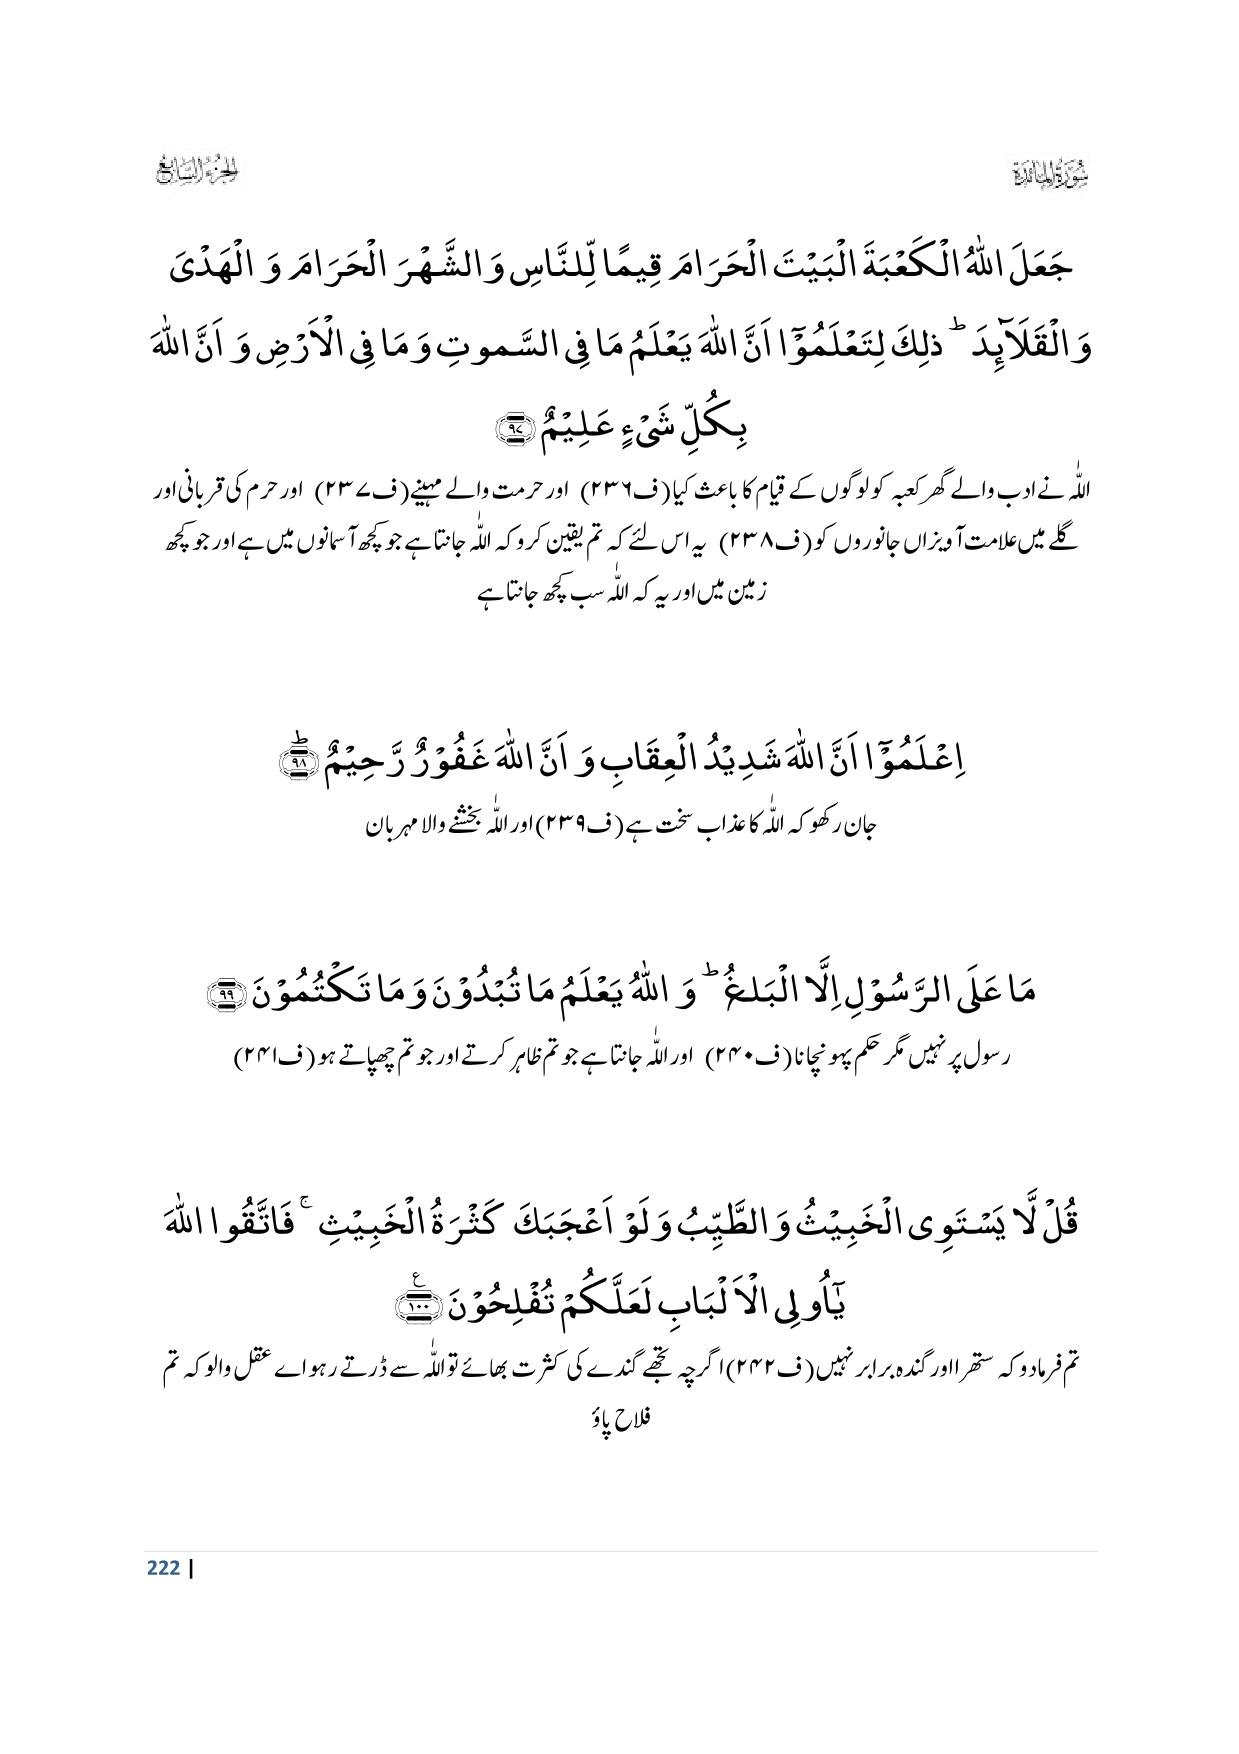 سُوْرَةُ المَائدة
الجزء السابع
جَعَلَ اللّٰهُ الْكَعْبَةَ الْبَيْتَ الْحَرَامَ قِيمًا لِّلنَّاسِ وَ الشَّهْرَ الْحَرَامَ وَ الْهَدْىَ
وَ الْقَلَآئِدَ ؕ ذلِكَ لِتَعْلَمُوْۤا اَنَّ اللّٰهَ يَعْلَمُ مَا فِى السَّموتِ وَ مَا فِى الْاَرْضِ وَ اَنَّ اللّٰهَ
بِكُلِّ شَىْءٍ عَلِيْمٌ ﴿۹۷﴾
اللّٰہ نے ادب والے گھر کعبہ کو لوگوں کے قیام کا باعث کیا (ف۲۳۶) اور حرمت والے مہینے (ف۲۳۷) اور حرم کی قربانی اور
گلے میں علامت آویزاں جانوروں کو (ف۲۳۸) یہ اس لئے کہ تم یقین کرو کہ اللّٰہ جانتا ہے جو کچھ آسمانوں میں ہے اور جو کچھ
زمین میں اور یہ کہ اللّٰہ سب کچھ جانتا ہے
اِعْلَمُوْۤا اَنَّ اللّٰهَ شَدِيْدُ الْعِقَابِ وَ اَنَّ اللّٰهَ غَفُوْرٌ رَّحِيْمٌ ﴿ؕ۹۸﴾
جان رکھو کہ اللّٰہ کا عذاب سخت ہے (ف۲۳۹) اور اللّٰہ بخشنے والا مہربان
مَا عَلَى الرَّسُوْلِ اِلَّا الْبَلغُ ؕ وَ اللّٰهُ يَعْلَمُ مَا تُبْدُوْنَ وَ مَا تَكْتُمُوْنَ ﴿۹۹﴾
رسول پر نہیں مگر حکم پہونچانا (ف۲۴۰) اور اللّٰہ جانتا ہے جو تم ظاہر کرتے اور جو تم چھپاتے ہو (ف۲۴۱)
قُلْ لَّا يَسْتَوِى الْخَبِيْثُ وَ الطَّيِّبُ وَ لَوْ اَعْجَبَكَ كَثْرَةُ الْخَبِيْثِ ۚ فَاتَّقُوا اللّٰهَ
يٰۤاُولِى الْاَلْبَابِ لَعَلَّكُمْ تُفْلِحُوْنَ ﴿۱۰۰﴾ؑ
تم فرمادو کہ ستھرا اور گندہ برابر نہیں (ف۲۴۲) اگرچہ تجھے گندے کی کثرت بھائے تو اللّٰہ سے ڈرتے رہو اے عقل والو کہ تم
فلاح پاؤ
222 |